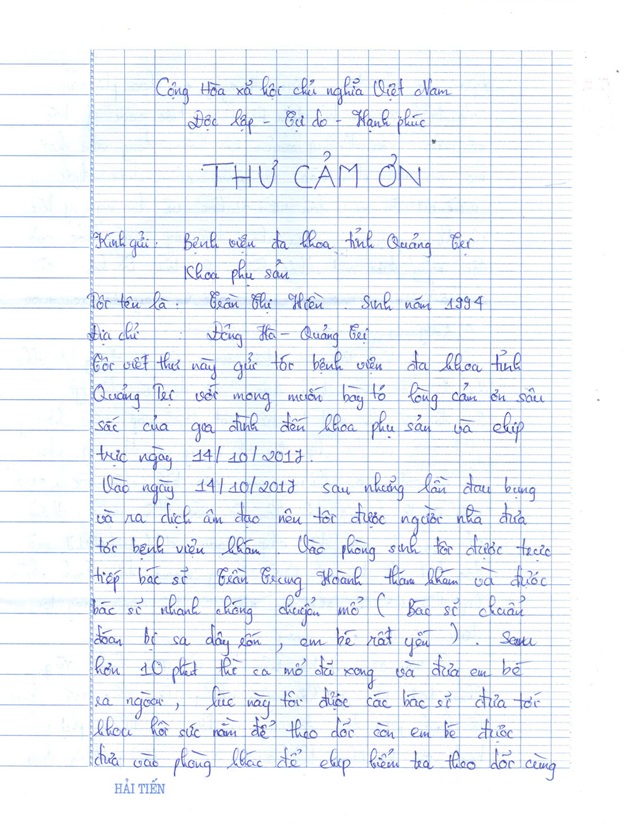 Cộng Hòa xã hội chủ nghĩa Việt Nam
Độc lập - Tự do - Hạnh phúc
THƯ CẢM ƠN
Kính gửi: Bệnh viện đa khoa tỉnh Quảng Trị
Khoa phụ sản
Tôi tên là: Trần Thị Hiền. Sinh năm 1994
Địa chỉ: Đông Hà - Quảng Trị
Tôi viết thư này gửi tới bệnh viện đa khoa tỉnh
Quảng Trị với mong muốn bày tỏ lòng cảm ơn sâu
sắc của gia đình đến khoa phụ sản và ekip
trực ngày 14/10/2017.
Vào ngày 14/10/2017 sau những lần đau bụng
và ra dịch âm đạo nên tôi được người nhà đưa
tới bệnh viện khám. Vào phòng sinh tôi được trực
tiếp bác sĩ Trần Trung Hoành thăm khám và được
bác sĩ nhanh chóng chuyển mổ (Bác sĩ chuẩn
đoán bị sa dây rốn, em bé rất yếu). Sau
hơn 10 phút thì ca mổ đã xong và đưa em bé
ra ngoài, lúc này tôi được các bác sĩ đưa tới
khoa hồi sức nằm để theo dõi còn em bé được
đưa vào phòng khác để ekip kiểm tra theo dõi cùng
HẢI TIẾN